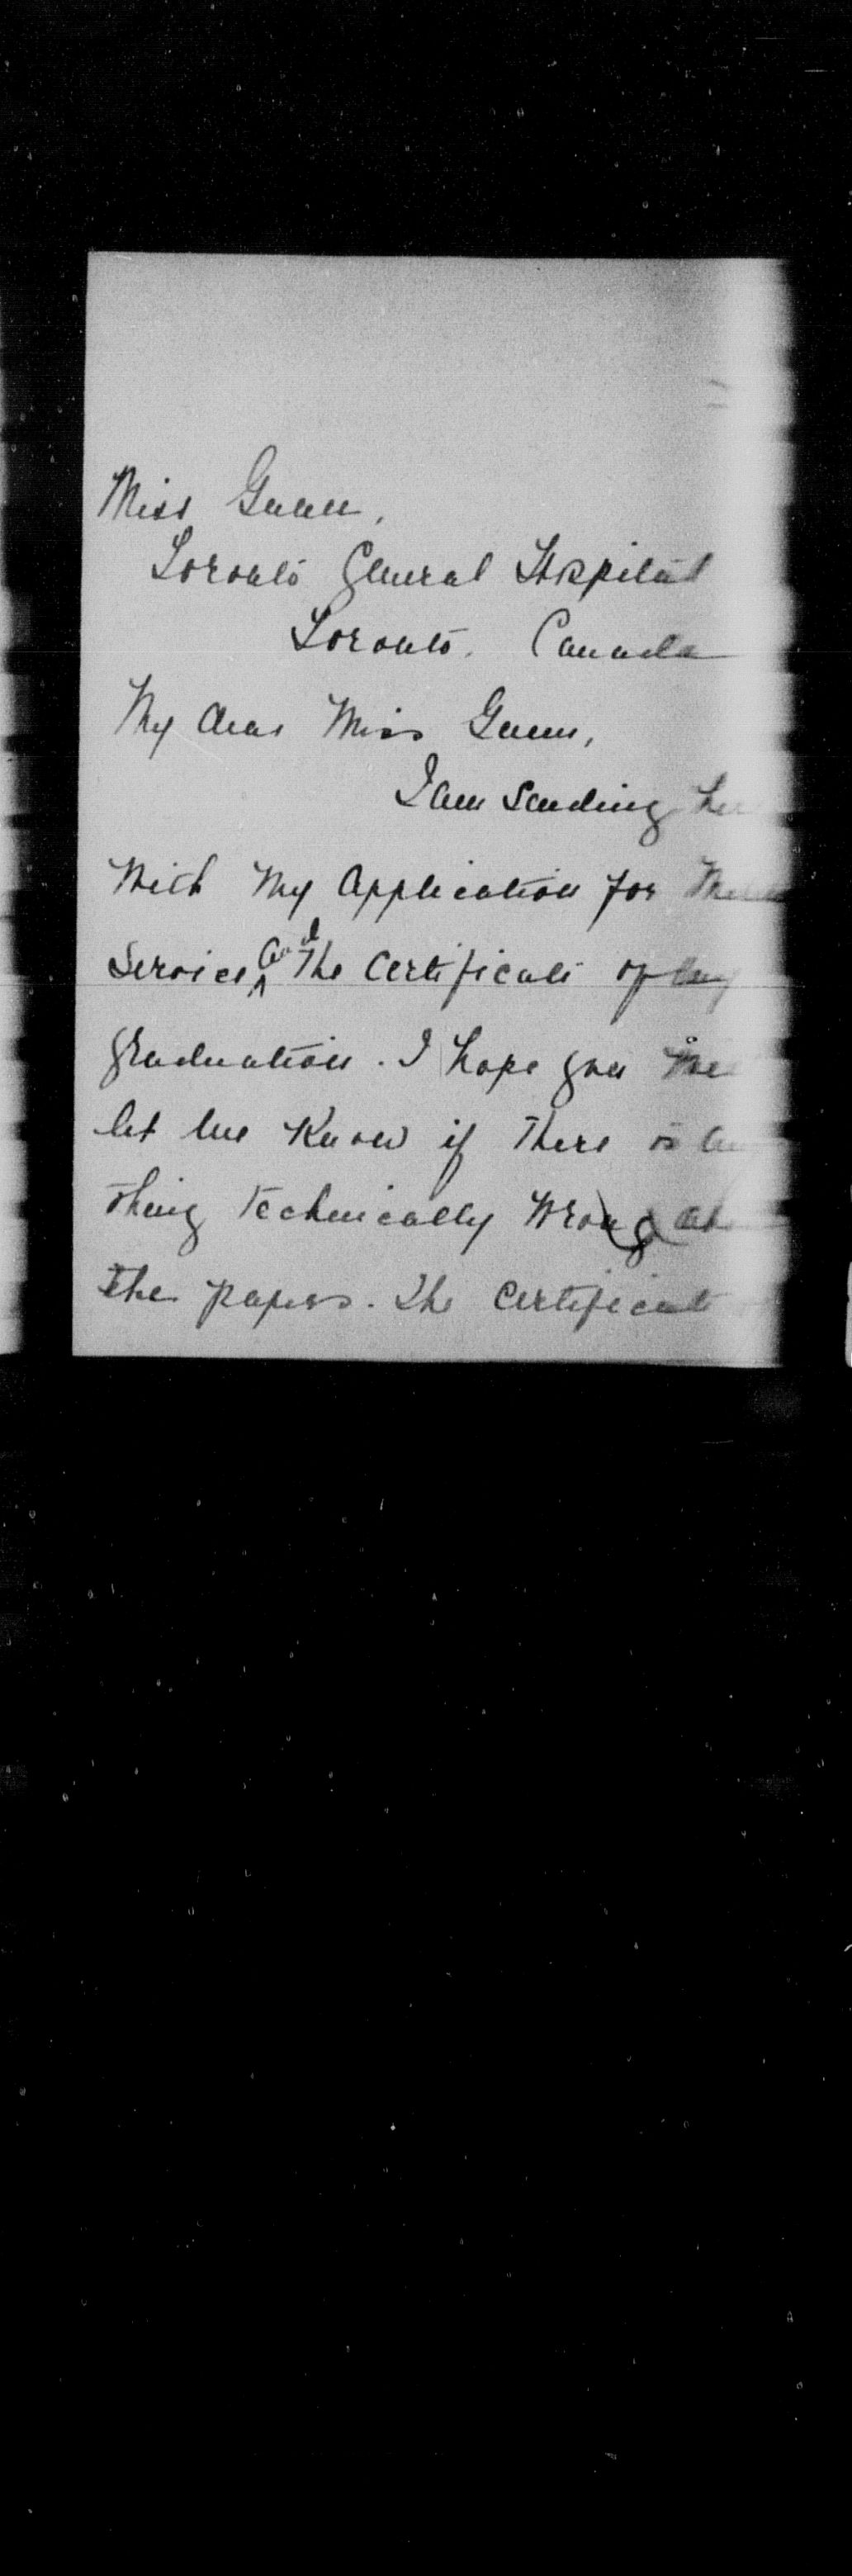 Miss Gunn,
Toronto General Hospital
Toronto. Canada
My dear Miss Gunn,
I am sending
with my application for
Service and the certificate of my
graduation. I hope you
let me know if there is
thing technically wrong
the papers. The certificate